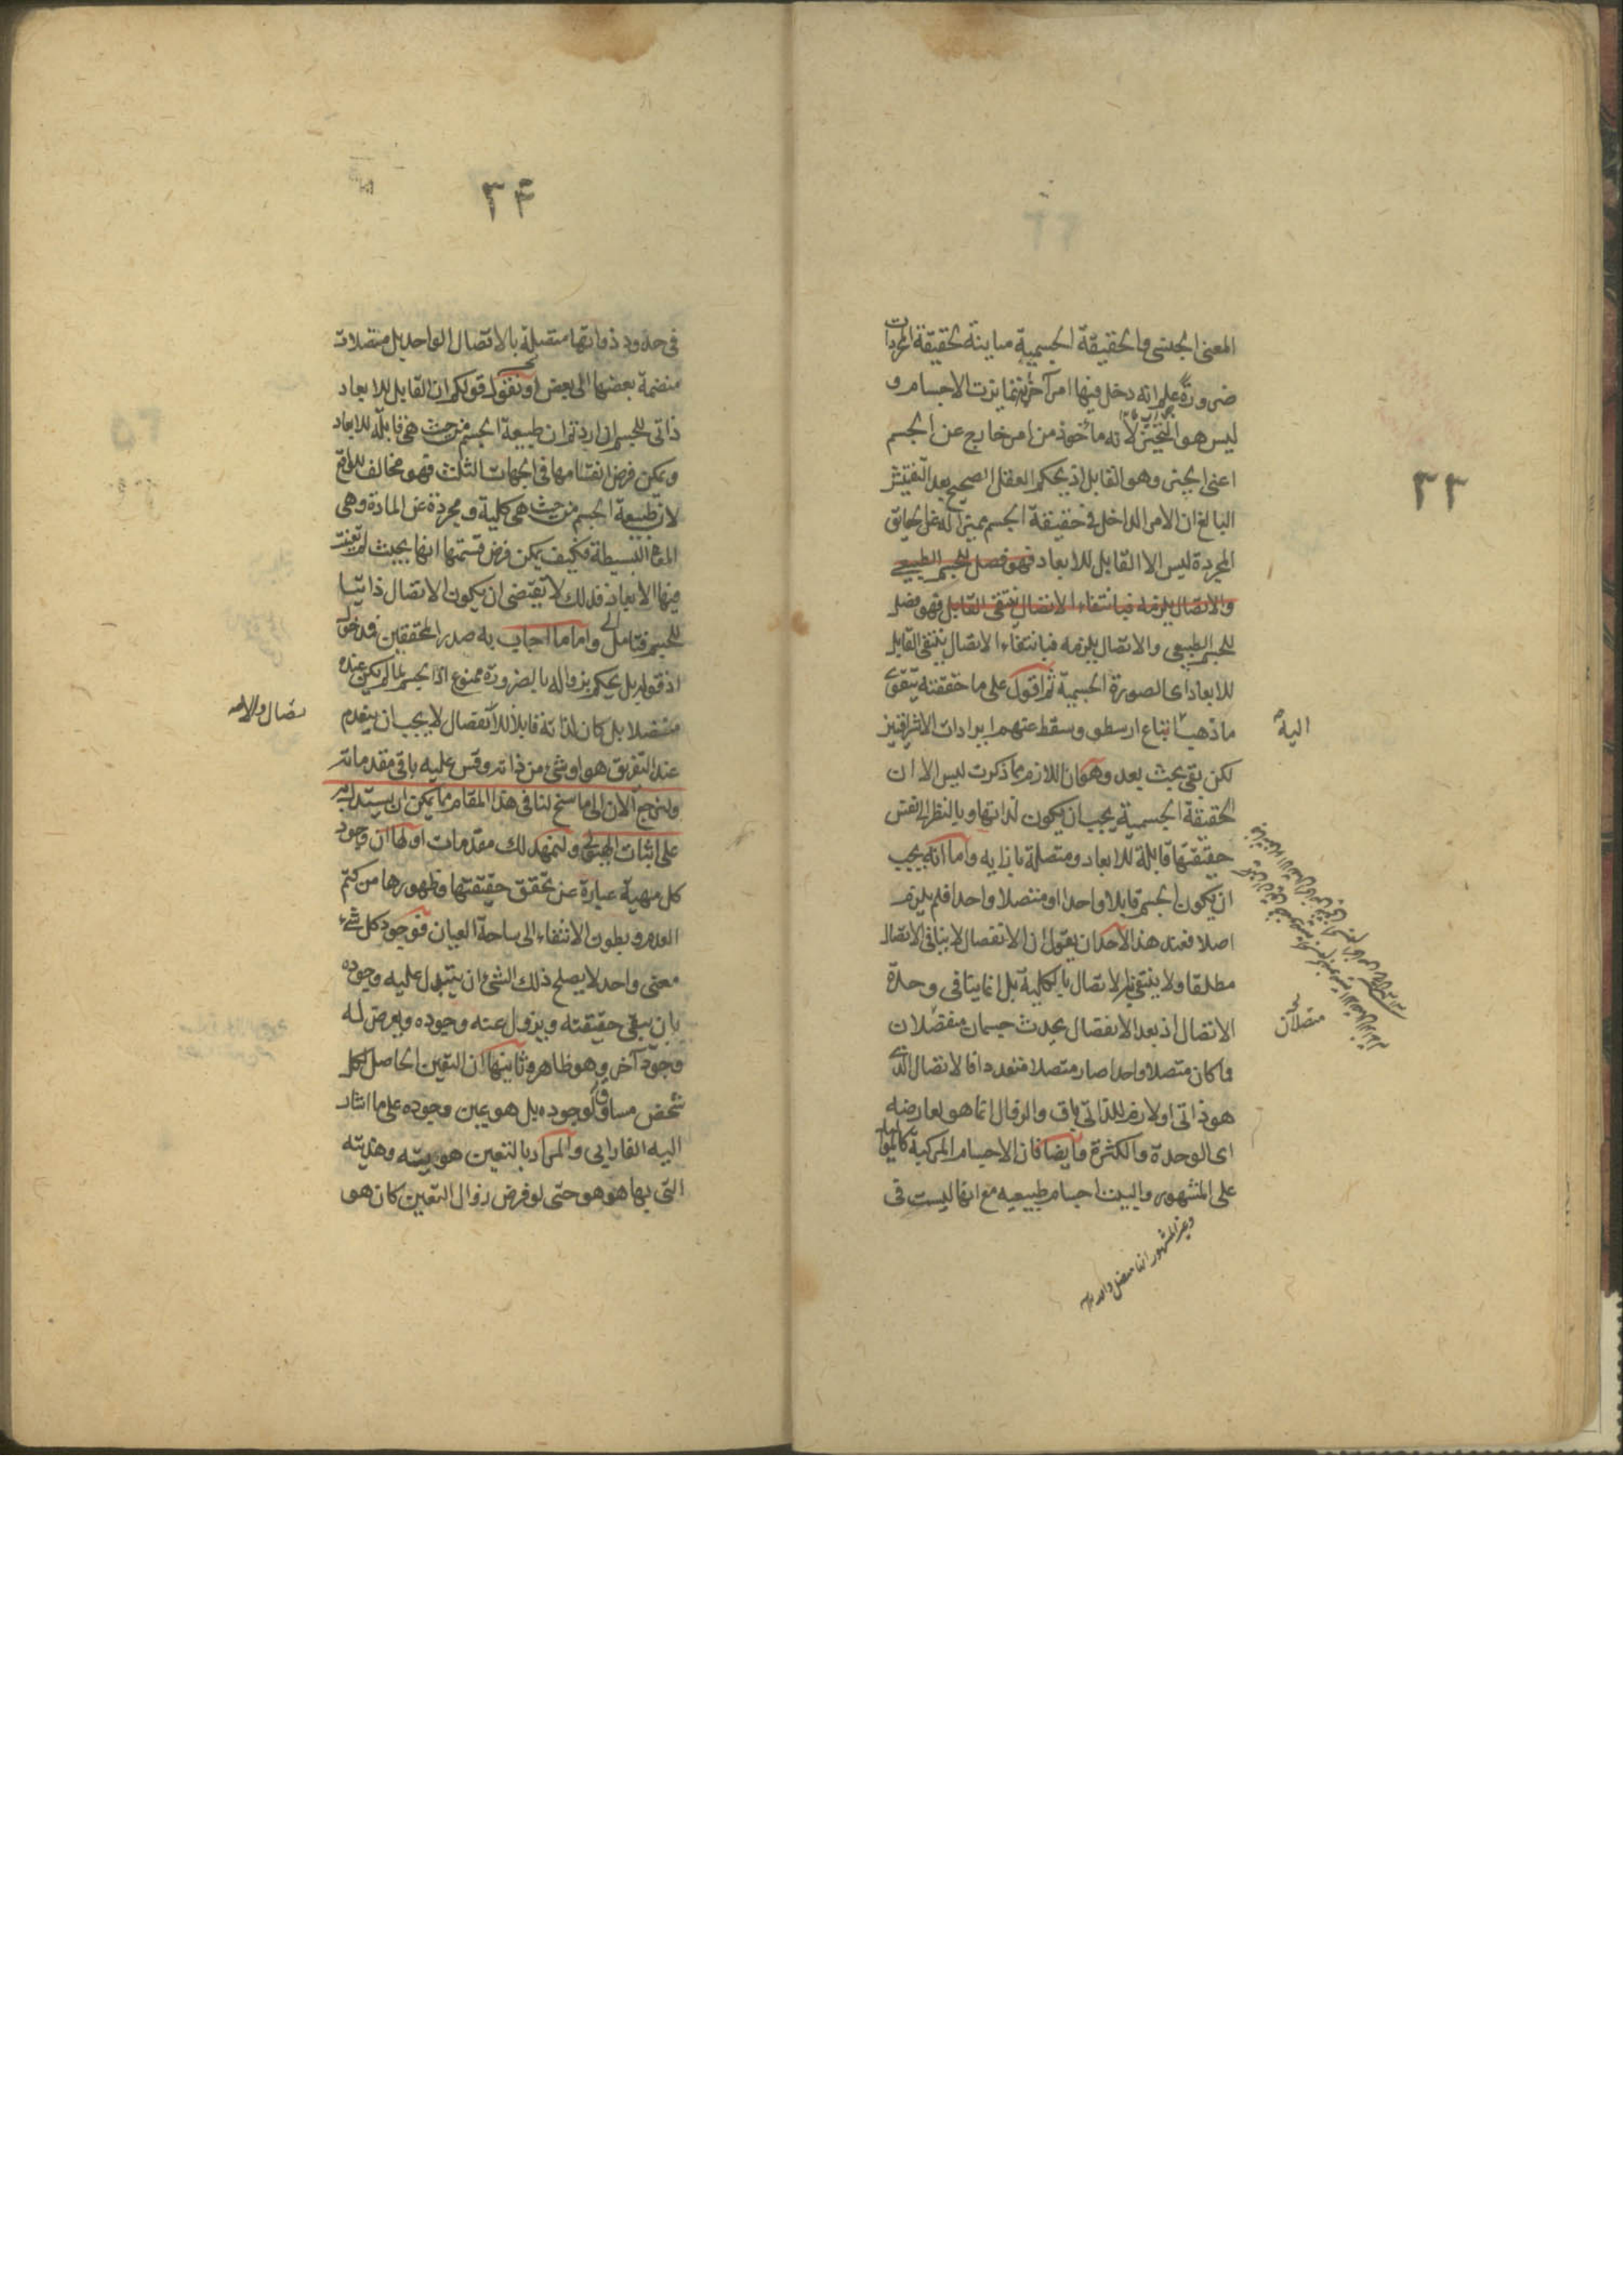 ٣٣
المعنى الجنسى والحقيقة الجسمية مباينة لحقيقة المجردات
ضرورة علم انه دخل فيها امر آخر به تمايزت الاجسام و
ليس هو التحيز لانه مأخوذ من امر خارج عن الجسم
اعنى الحيز وهو القابل اذ يحكم العقل الصحيح بعد التفتيش
البالغ ان الامر الداخل فى حقيقة الجسم مميزا له عن الحقايق
المجردة ليس الا القابل للابعاد فهو فصل للجسم الطبيعى
والاتصال يلزمه فبانتفاء الاتصال ينتفى القابل فهو فصل
للجسم الطبيعى والاتصال يلزمه فبانتفاء الاتصال ينتفى القابل
للابعاد اى الصورة الجسمية ثم اقول على ما حققته يتقوى
ما ذهب اتباع ارسطو وسقط عنهم ايرادات الاشراقيين
اليه
لكن بقى بحث بعد وهو ان اللازم مما ذكرت ليس الا ان
الحقيقة الجسمية يجب ان يكون لذاتها وبالنظر الى نفس
حقيقتها قابلة للابعاد ومتصلة بازايه واما انه يجب
ان يكون الجسم قابلا واحدا او متصلا واحدا فلم يلزم
اصلا فعند هذا لاحد ان يقول ان الانفصال لا ينافى الاتصال
مطلقا ولا ينتفى به الاتصال بالكلية بل انما ينافى وحدة
الاتصال اذ بعد الانفصال يحدث جسمان منفصلان
متصلان
فما كان متصلا واحدا صار متصلا متعددا فالاتصال الذى
هو ذاتى او لازم للذاتى باق والزوال انما هو لعارضه
اى الوحدة والكثرة وايضا فان الاجسام المركبة كالمواليد
على المشهور والبيت اجسام طبيعيه مع انها ليست فى
وغير المشهور انها متصل واحد
٣٤
فى حدود ذواتها متصلة بالاتصال الواحد بل متصلات
منضمة بعضها الى بعض او نقول قولكم ان القابل للابعاد
ذاتى للجسم ان اردتم ان طبيعة الجسم من حيث هى قابلة للابعاد
ويمكن فرض انقسامها فى الجهات الثلث فهو مخالف للواقع
لان طبيعة الجسم من حيث هى كلية ومجردة عن المادة وهى
البسيطة فكيف يمكن فرض قسمتها انها بحيث لو تعينت
فيها الابعاد فذلك لا تقتضى ان يكون الاتصال ذاتيا
للجسم فتامل واما ما اجاب به صدر المحققين فمدخول
اذ قوله بل يحكم بزواله بالضرورة ممنوع اذ الجسم لما لم يكن عنده
متصلا بل كان لذاته قابلا للانفصال لا يجب ان ينعدم
عند التفريق هو او شئ من ذاته وقس عليه باقى مقدماته
ولنرجع الآن الى ما سنح لنا فى هذا المقام مما يمكن ان يستدل به
على اثبات الهيولى ولنمهد لك مقدمات اولها ان وجود
كل مهية عبارة عن تحقق حقيقتها وظهورها من كتم
العدم وبطون الانتفاء الى ساحة العيان فوجود كل شئ
معنى واحد لا يصلح ذلك الشئ ان يتبدل عليه وجوده
بان يبقى حقيقته ويزول عنه وجوده ويعرض له
وجود آخر وهو ظاهر وثانيها ان التعين الحاصل لكل
شخص مساوق لوجوده بل هو عين وجوده على ما اشار
اليه الفارابى والمراد بالتعين هويته وهذيته
التى بها هو هو حتى لو فرض زوال التعين كان هو